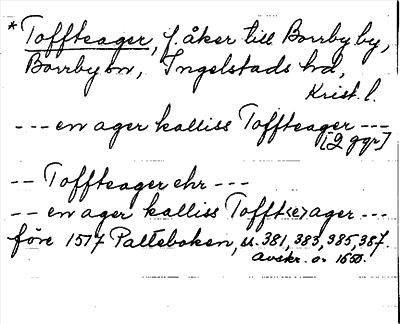 * Toffteager, f. åker till Borrby by,
Borrby sn, Ingelstads hd,
Krist. l.
--- en ager kalliss Toffteager ---
[2 ggr]
-- Toffteager ehr ---
-- en ager kalliss Tofft<e>ager ---
före 1517 Palteboken, u. 381, 383, 385, 387.
avskr. o. 1650.